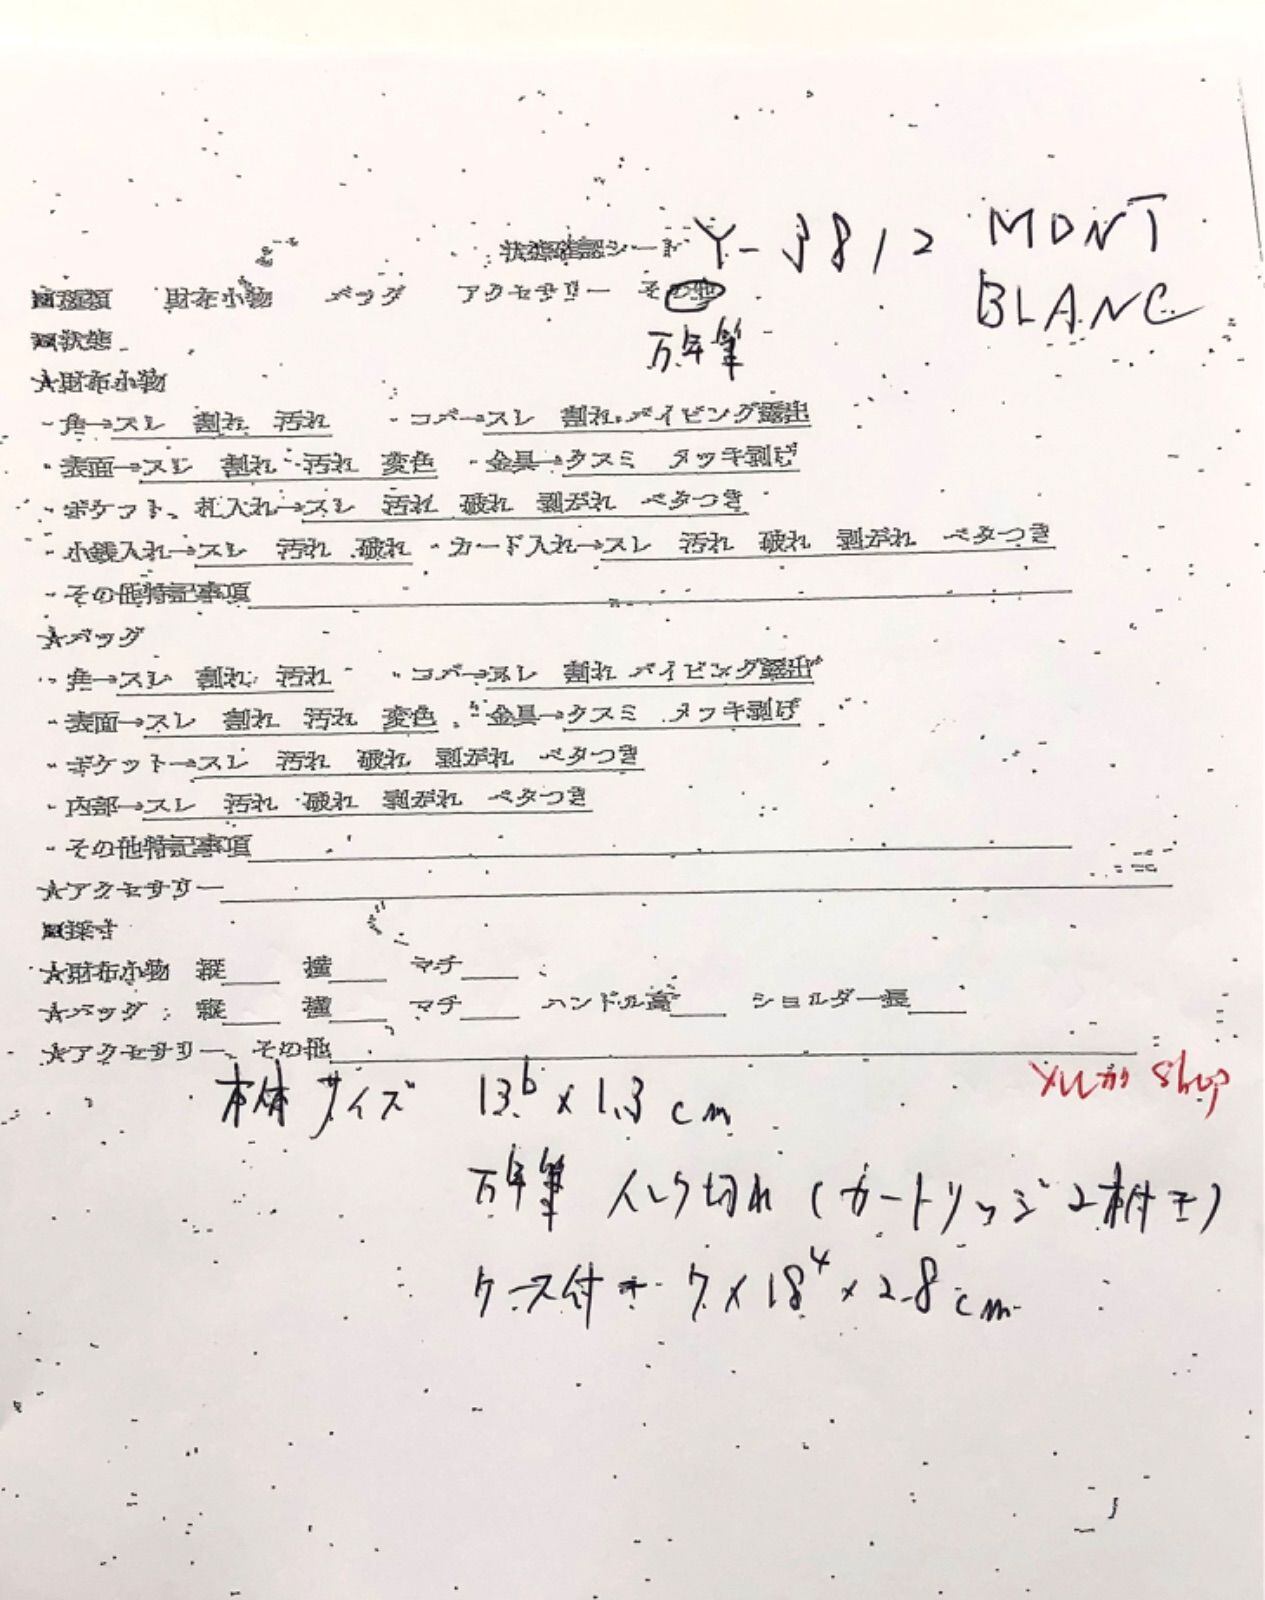 状態確認シート Y-3812 MONT
BLANC
■種類 財布小物 バッグ アクセサリー その他
万年筆
■状態
★財布小物
・角→スレ 割れ 汚れ ・コバ→スレ 割れ パイピング露出
・表面→スレ 割れ 汚れ 変色 ・金具→クスミ メッキ剥げ
・ポケット、札入れ→スレ 汚れ 破れ 剥がれ ベタつき
・小銭入れ→スレ 汚れ 破れ ・カード入れ→スレ 汚れ 破れ 剥がれ ベタつき
・その他特記事項
★バッグ
・角→スレ 割れ 汚れ ・コバ→スレ 割れ パイピング露出
・表面→スレ 割れ 汚れ 変色 ・金具→クスミ メッキ剥げ
・ポケット→スレ 汚れ 破れ 剥がれ ベタつき
・内部→スレ 汚れ 破れ 剥がれ ベタつき
・その他特記事項
★アクセサリー
■採寸
★財布小物 縦 横 マチ
★バッグ 縦 横 マチ ハンドル高 ショルダー長
★アクセサリー、その他
shop
本体サイズ 13.6 x 1.3 cm
万年筆 インク切れ (カートリッジ2本付き)
ケース付き 7 x 18.4 x 2.8 cm